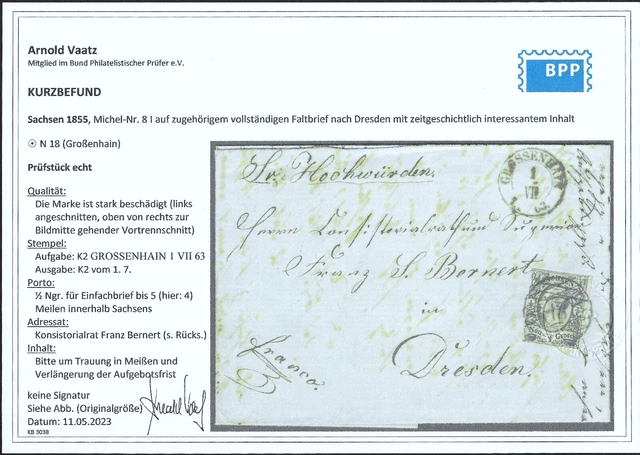 Arnold Vaatz
Mitglied im Bund Philatelistischer Prüfer e.V.
BPP
KURZBEFUND
Sachsen 1855, Michel-Nr. 8 I auf zugehörigem vollständigen Faltbrief nach Dresden mit zeitgeschichtlich interessantem Inhalt
⊙ N 18 (Großenhain)
Prüfstück echt
Qualität:
Die Marke ist stark beschädigt (links
angeschnitten, oben von rechts zur
Bildmitte gehender Vortrennschnitt)
Stempel:
Aufgabe: K2 GROSSENHAIN 1 VII 63
Ausgabe: K2 vom 1. 7.
Porto:
½ Ngr. für Einfachbrief bis 5 (hier: 4)
Meilen innerhalb Sachsens
Adressat:
Konsistorialrat Franz Bernert (s. Rücks.)
Inhalt:
Bitte um Trauung in Meißen und
Verlängerung der Aufgebotsfrist
keine Signatur
Siehe Abb. (Originalgröße)
Datum: 11.05.2023
KB 3038
Sr. Hochwürden,
GROSSENHAIN
1
VII
63
Herrn Consistorialrath und Superior
Franz S. Bernert
in
Dresden.
franco.
18